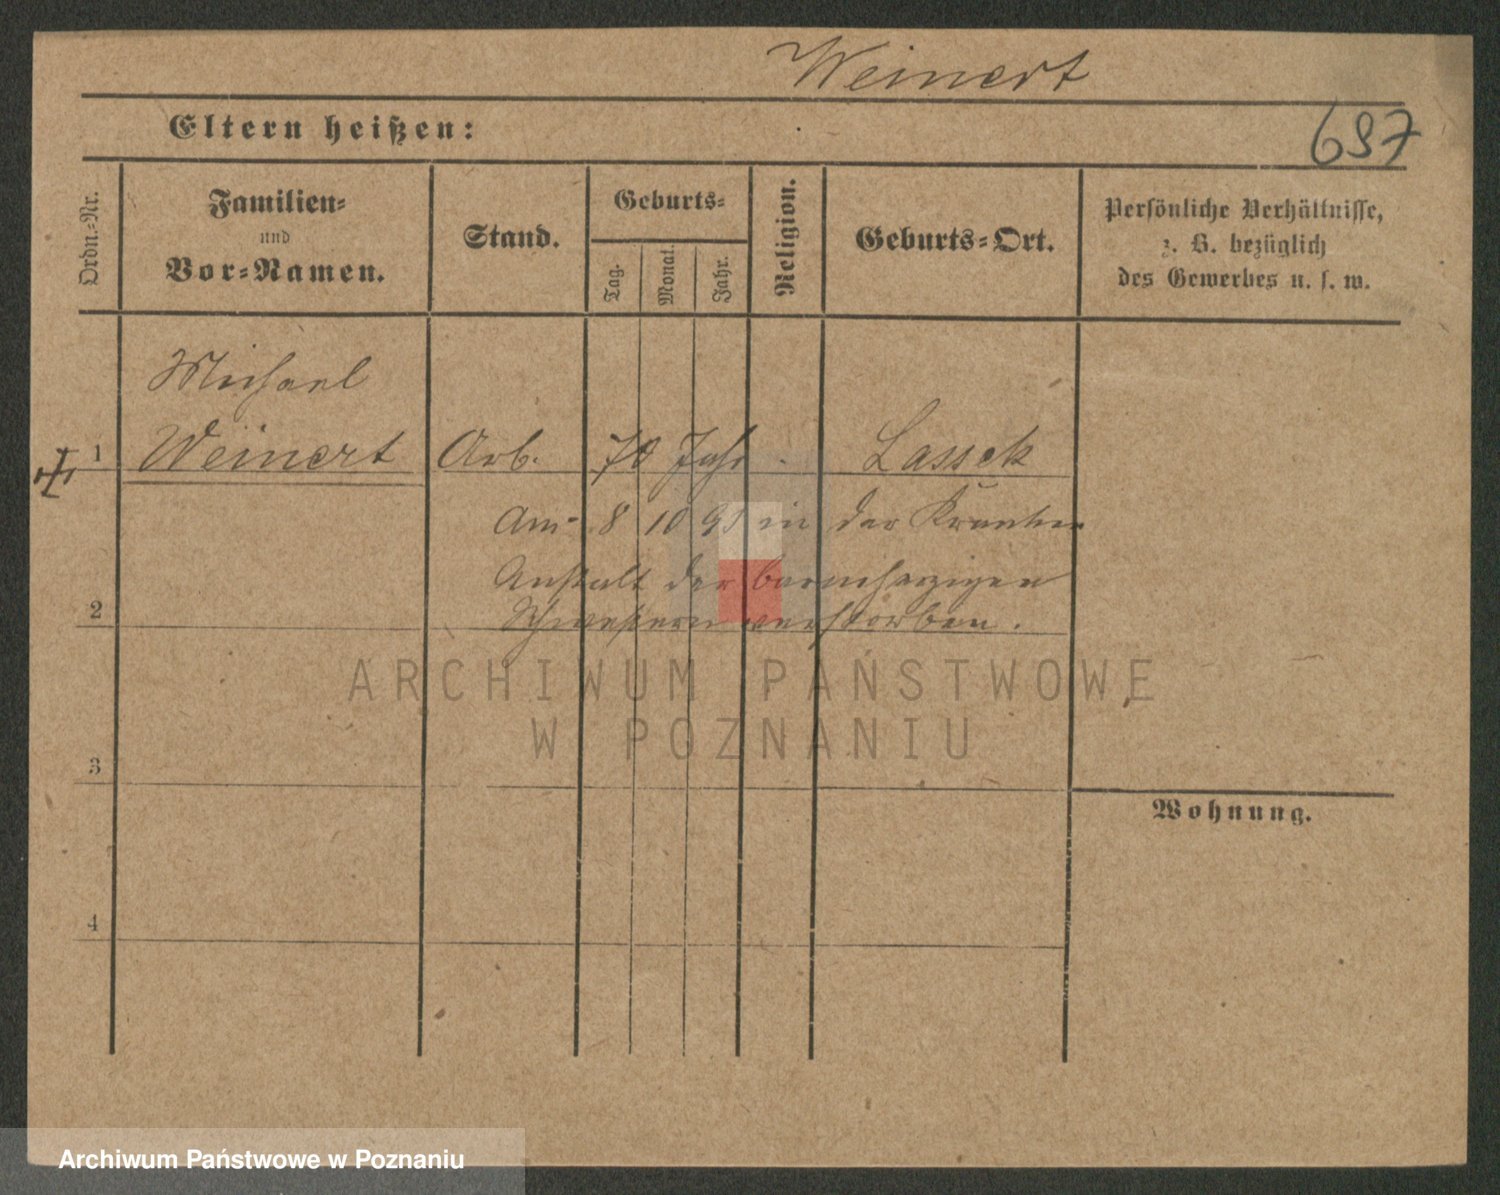 Weinert
Eltern heißen:
697
Ordn.-Nr.
Familien-
und
Vor-Namen.
Stand.
Geburts-
Tag.
Monat.
Jahr.
Religion.
Geburts-Ort.
Persönliche Verhältnisse,
z. B. bezüglich
des Gewerbes u. s. w.
Michael
1 Weinert Arb. 70 Jahr Lassek
Am 8 10 95 in der Kranken
Anstalt der barmherzigen
2 Schwestern verstorben.
ARCHIWUM PAŃSTWOWE
W POZNANIU
3
Wohnung.
4
Archiwum Państwowe w Poznaniu